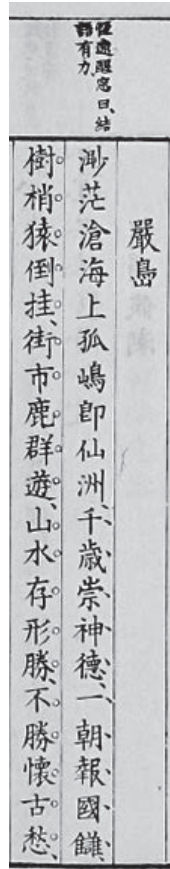 恆遠醒窓曰、結
語有力
嚴島
渺茫滄海上孤嶋卽仙洲、千歳崇神德、一朝報國讎、
樹梢猿倒挂、街市鹿群遊、山水存形勝、不勝懷古愁、